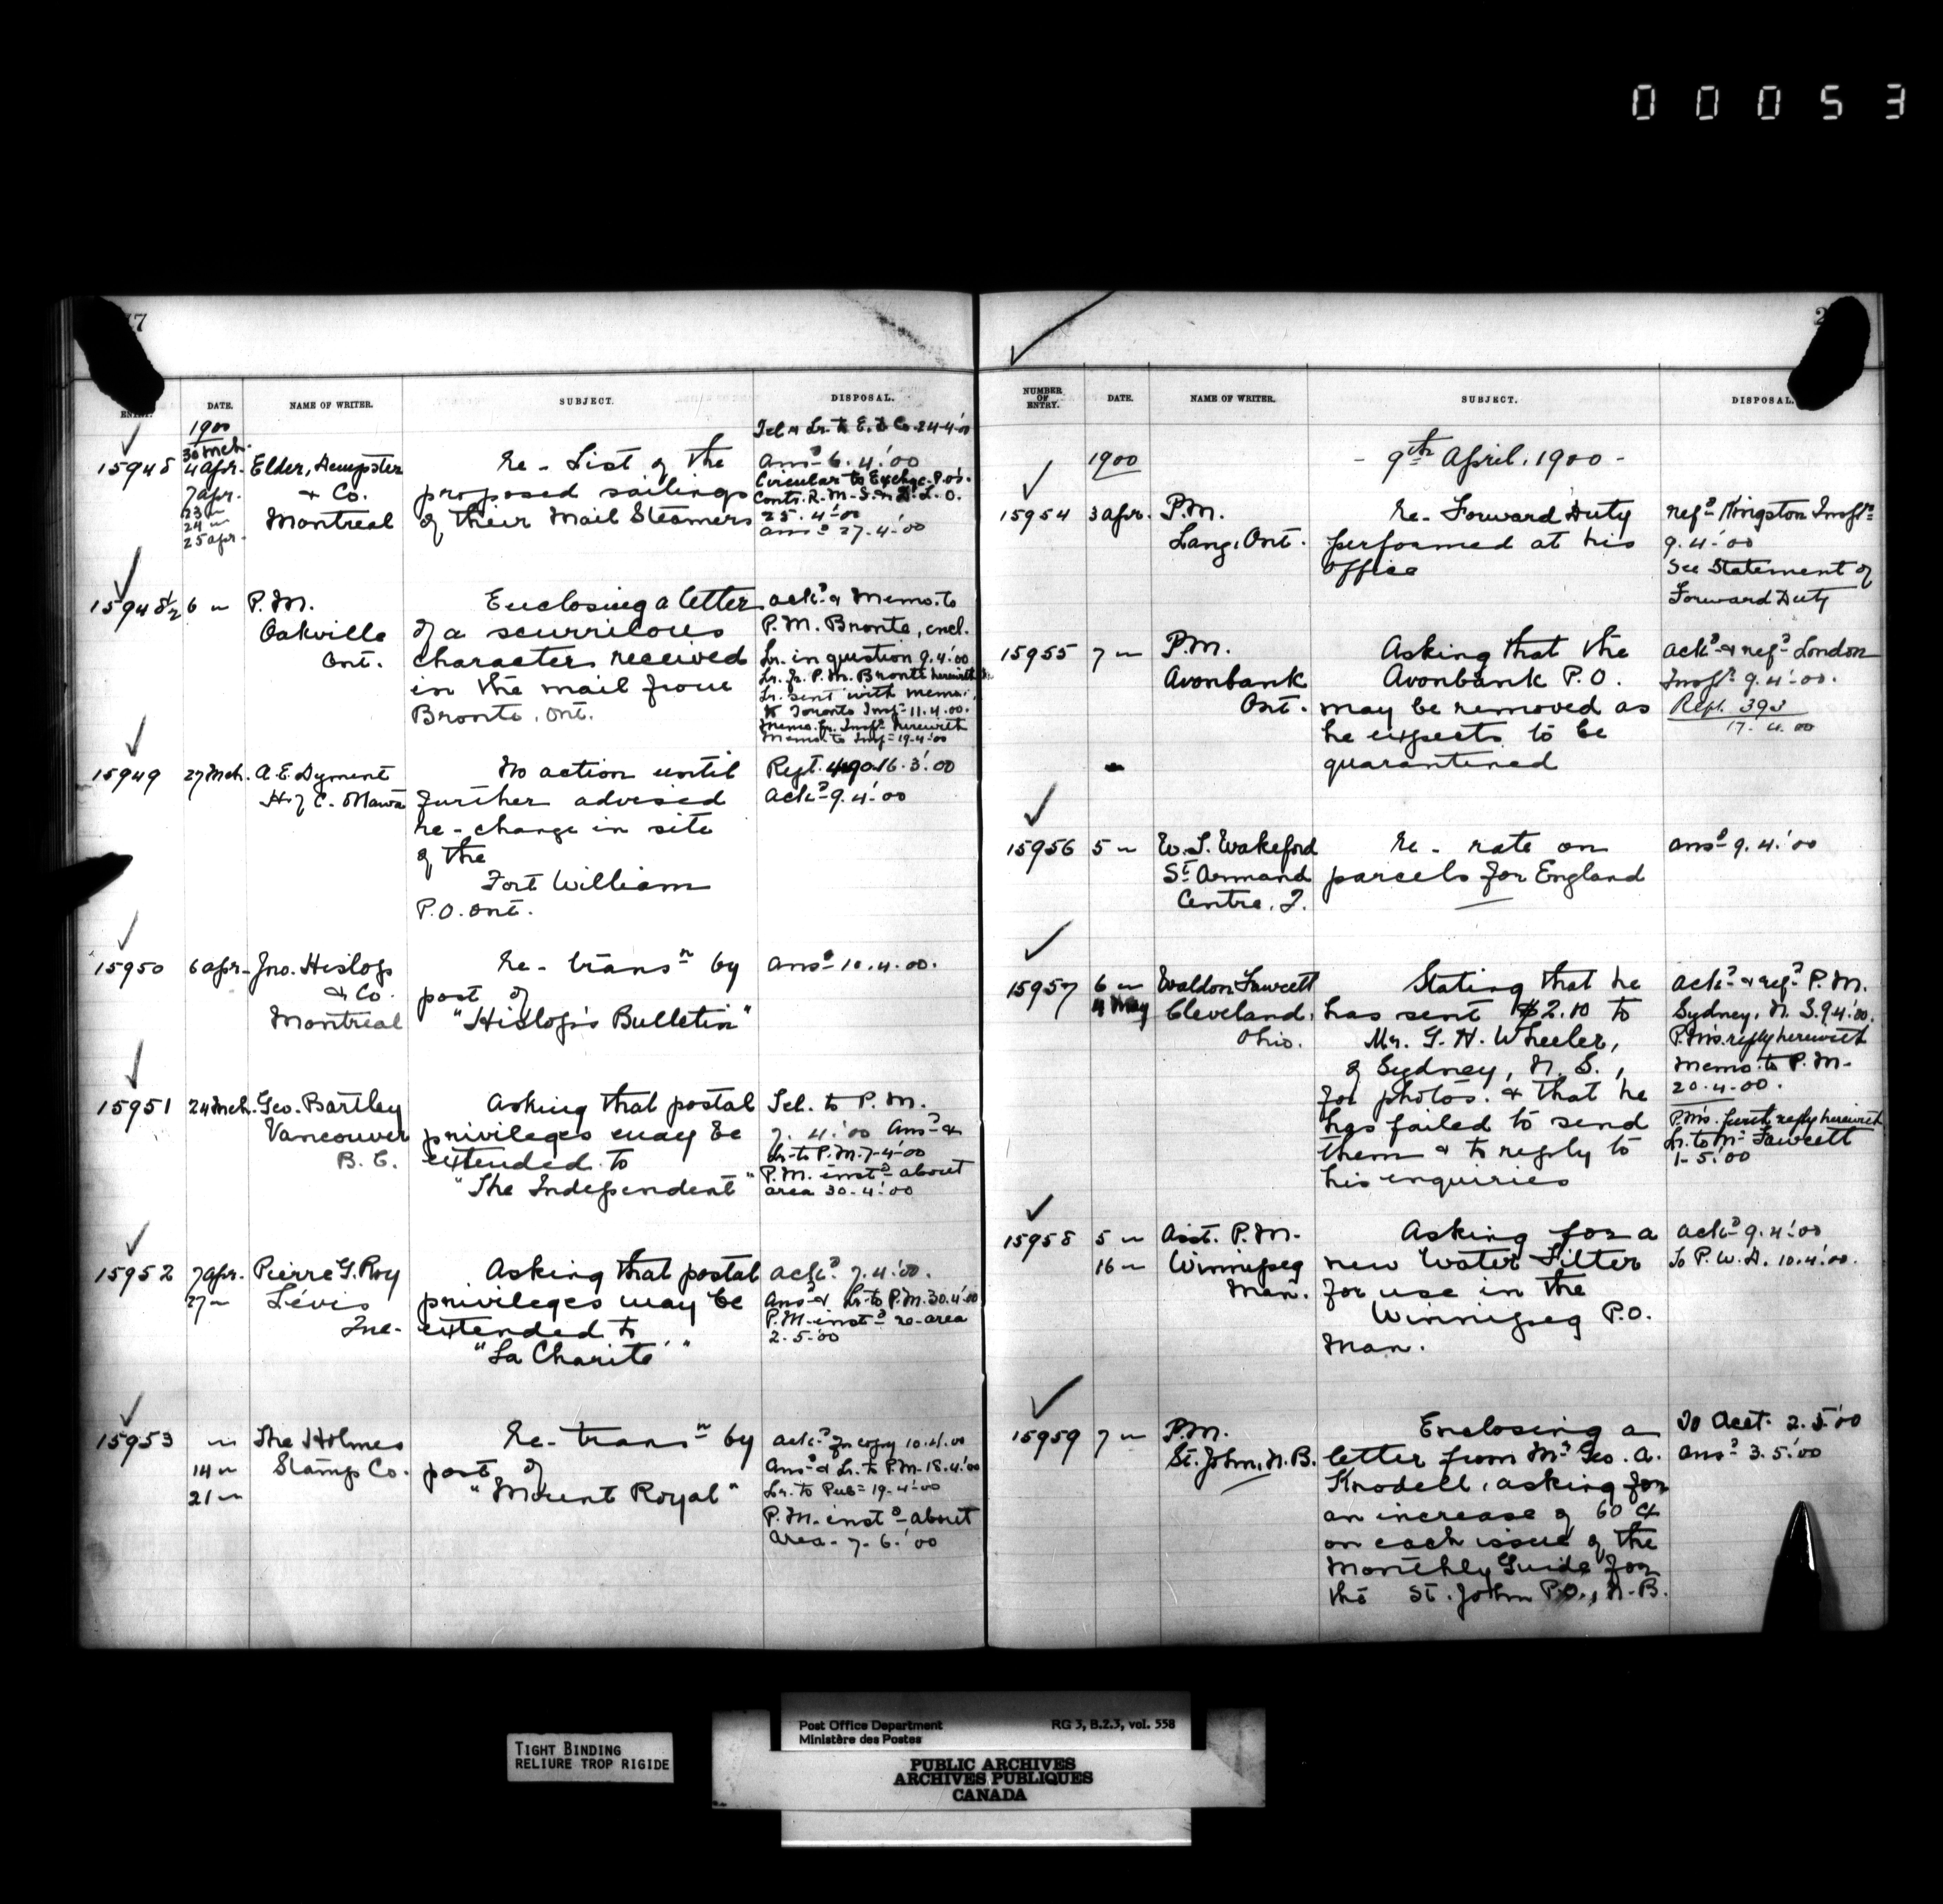 00053
NUMBER OF ENTRY.
DATE.
NAME OF WRITER.
SUBJECT.
DISPOSAL.
1900
15948
30 Mch.
4 Apr.
7 Apr.
23 "
24 "
25 Apr.
Elder, Dempster
& Co.
Montreal
Re - List of the
proposed sailings
of their Mail Steamers
Tel & Lr. to E. D. Co. 24-4-00
Ansd 6.4.'00
Circular to Exchge. P.Os.
Contr. R.M.S. & D.L.O.
25.4.'00
Ansd 27.4.'00
15948½
6 "
P.M.
Oakville
Ont.
Enclosing a letter
of a scurrilous
character received
in the mail from
Bronte, Ont.
Ackd & Memo. to
P.M. Bronte, encl.
Lr. in question 9.4.'00
Lr. fr. P.M. Bronte herewith
Lr. sent with memo.
to Toronto Inspr 11.4.00.
Memo. fr. Inspr herewith
Memo. to Inspr 19.4.'00
15949
27 Mch.
A.E. Dyment
H. of C. Ottawa
No action until
further advised
re - change in site
of the
Fort William
P.O. Ont.
Rept. 490 16.3.'00
Ackd 9.4.'00
15950
6 Apr.
Jno. Hislop
& Co.
Montreal
Re - transn by
post of
"Hislop's Bulletin"
Ansd 10.4.00.
15951
24 Mch.
Geo. Bartley
Vancouver
B.C.
Asking that postal
privileges may be
extended to
"The Independent"
Tel. to P.M.
7.4.'00 Ansd &
Lr. to P.M. 7-4-00
P.M. instd about
area 30.4.'00
15952
7 Apr.
27 "
Pierre G. Roy
Lévis
Que.
Asking that postal
privileges may be
extended to
"La Charité"
Ackd 7.4.'00.
Ansd & Lr. to P.M. 30.4.'00
P.M. instd re-area
2.5.'00
15953
"
14 "
21 "
The Holmes
Stamp Co.
Re - transn by
post of
"Mount Royal"
Ackd for copy 10.4.00
Ansd & Lr. to P.M. 18.4.'00
Lr. to Pubr 19.4.'00
P.M. instd about
area. 7.6.'00
NUMBER OF ENTRY.
DATE.
NAME OF WRITER.
SUBJECT.
DISPOSAL.
1900
- 9th April, 1900 -
15954
3 Apr.
P.M.
Lang, Ont.
Re - Forward Duty
performed at his
office
Refd Kingston Inspr
9.4.'00
See Statement of
Forward Duty
15955
7 "
P.M.
Avonbank
Ont.
Asking that the
Avonbank P.O.
may be removed as
he expects to be
quarantined
Ackd & refd London
Inspr 9.4.'00.
Rept. 393
17.4.00
15956
5 "
St Armand
Centre, Q.
Re - rate on
parcels for England
Ansd 9.4.'00
15957
6 "
4 May
Waldon Fawcett
Cleveland,
Ohio.
Stating that he
has sent $2.10 to
Mr. G.H. Wheeler,
of Sydney, N.S.,
for photos. & that he
has failed to send
them & to reply to
his enquiries
Ackd & refd P.M.
Sydney, N.S. 9.4.'00.
P.M's. reply herewith
Memo. to P.M.
20.4.00.
P.M's. furth reply herewith
Lr. to Mr Fawcett
1.5.'00
15958
5 "
16 "
Asst. P.M.
Winnipeg
Man.
Asking for a
new Water Filter
for use in the
Winnipeg P.O.
Man.
Ackd 9.4.'00
To P.W.D. 10.4.'00.
15959
7 "
P.M.
St. John, N.B.
Enclosing a
letter from Mr Geo. A.
Knodell, asking for
an increase of 60 c/
on each issue of the
Monthly Guide for
the St. John P.O., N.B.
To Acct. 2.5.'00
Ansd 3.5.'00
TIGHT BINDING
RELIURE TROP RIGIDE
Post Office Department RG 3, B.2.3, vol. 558
Ministère des Postes
PUBLIC ARCHIVES
ARCHIVES PUBLIQUES
CANADA